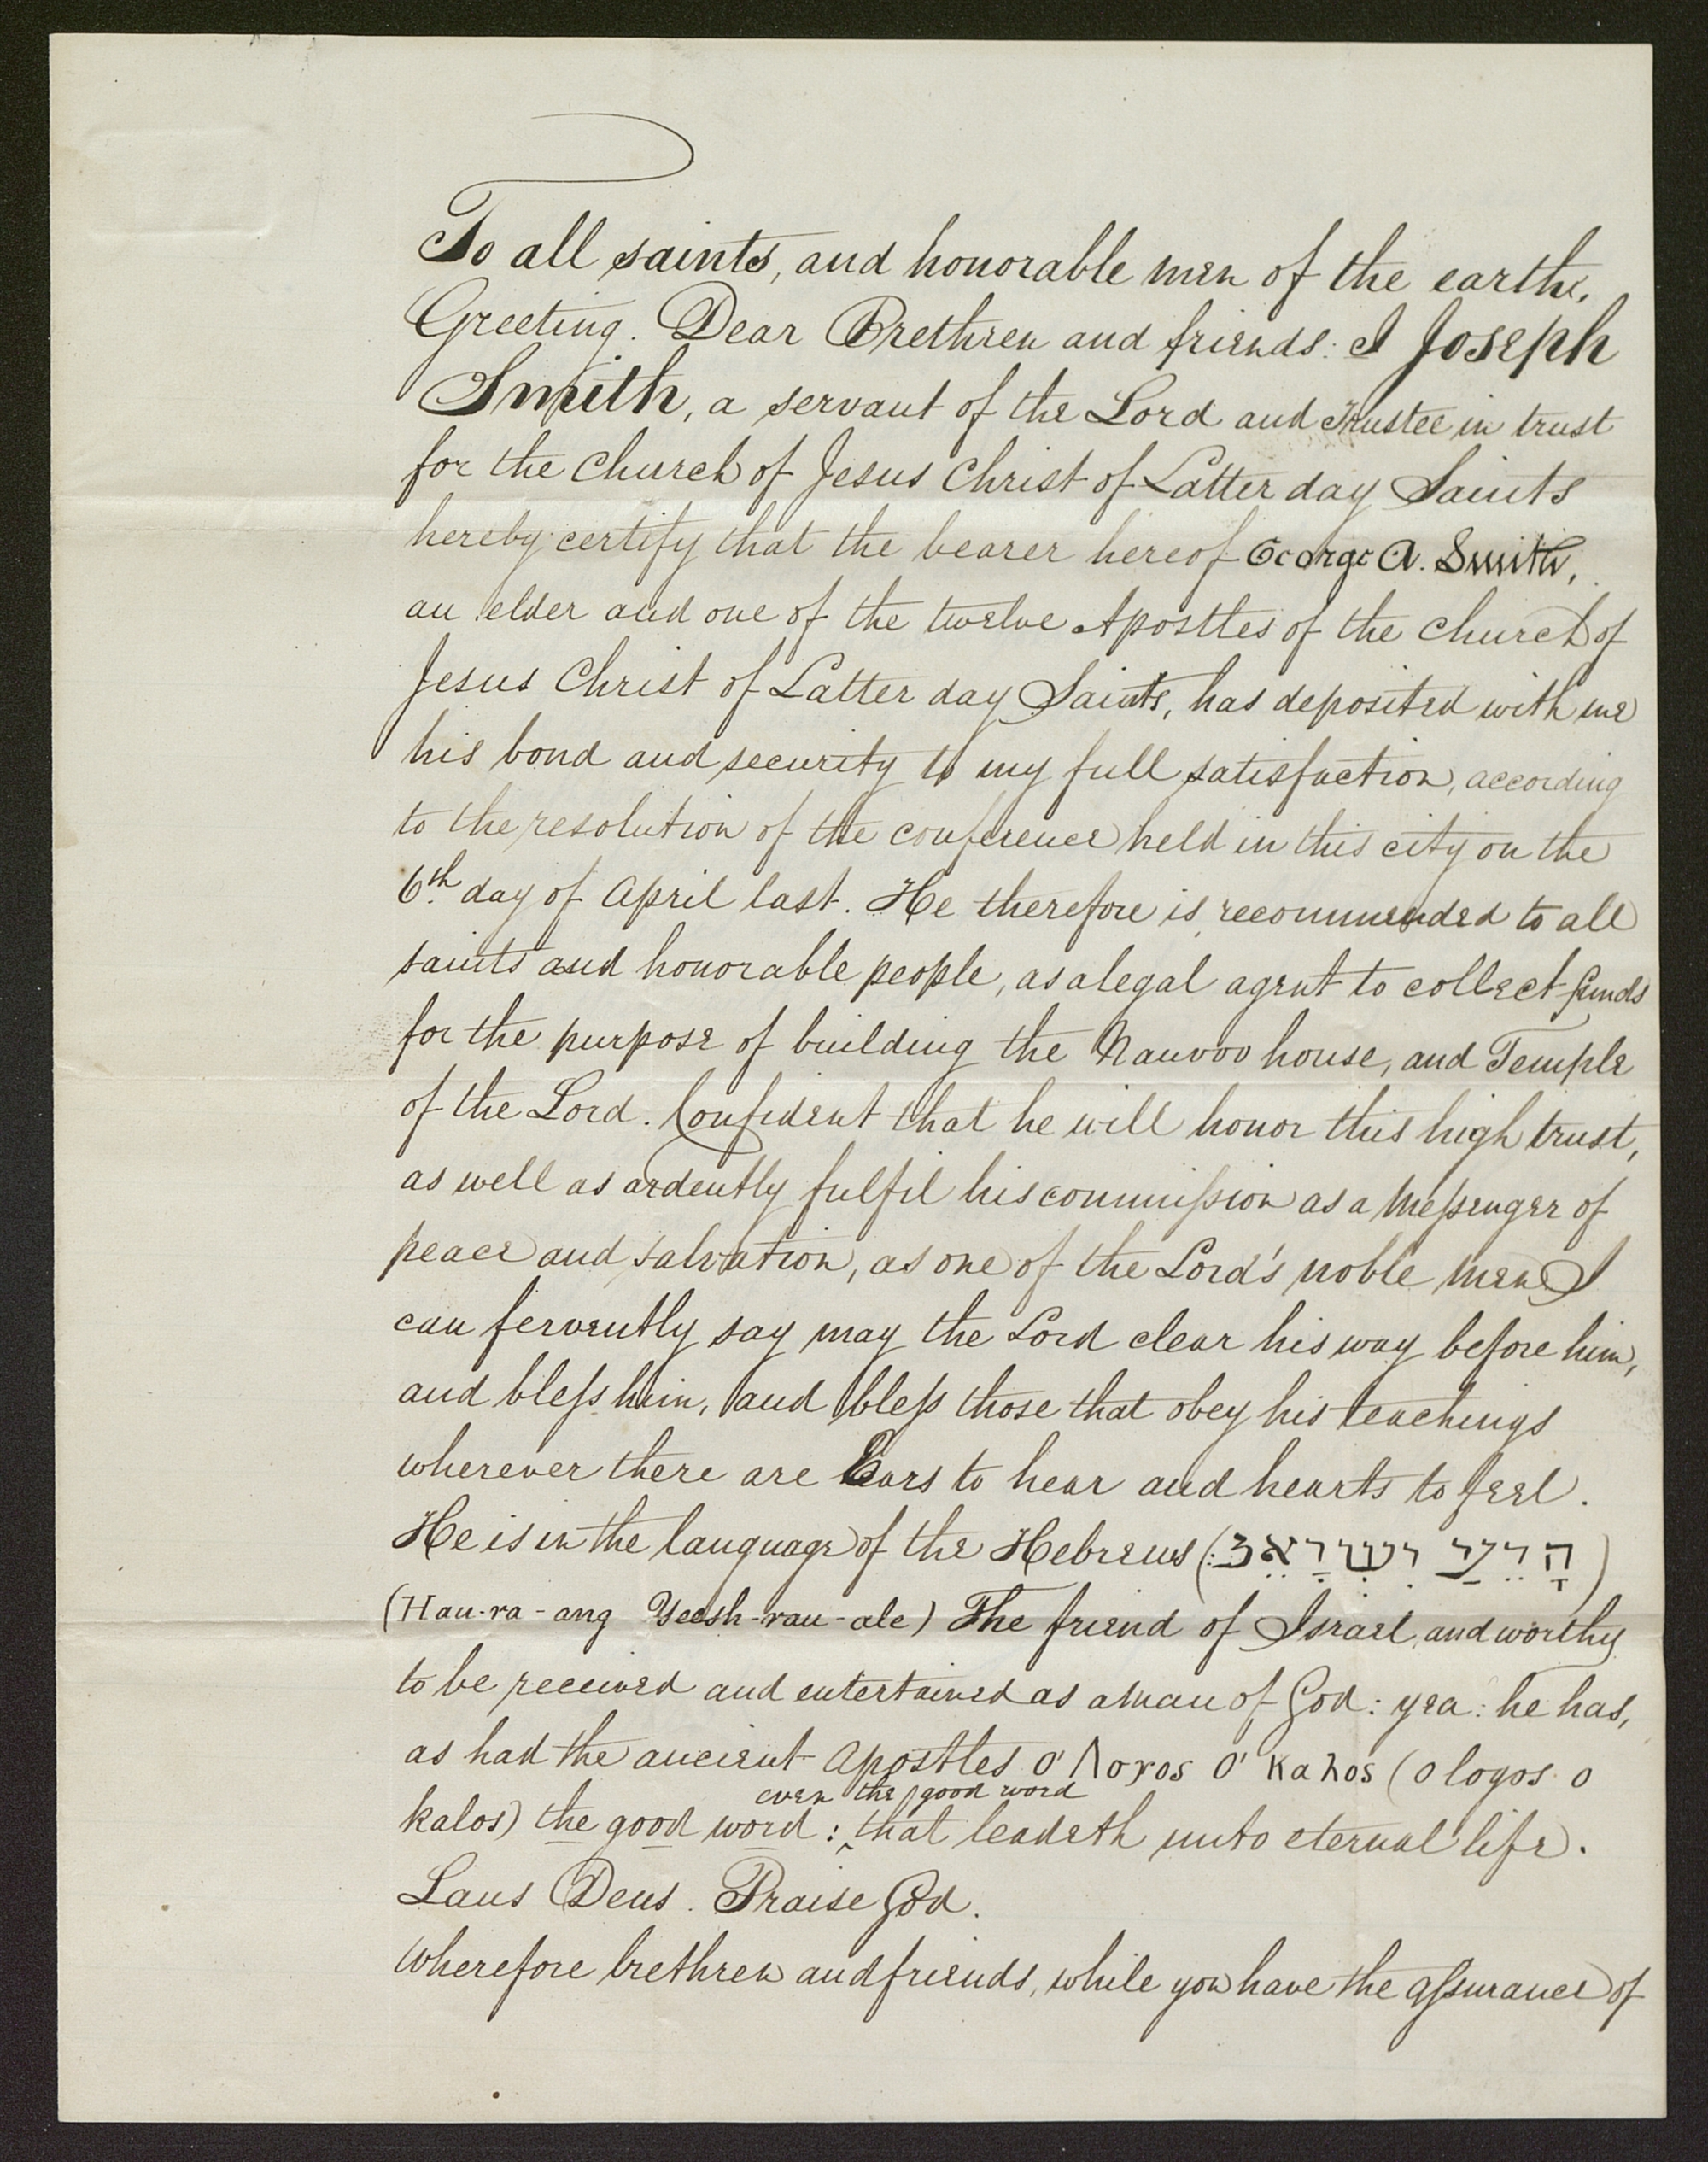 To all saints, and honorable men of the earth,
Greeting. Dear Brethren and friends: I Joseph
Smith, a servant of the Lord and Trustee in trust
for the Church of Jesus Christ of Latter day Saints
hereby certify that the bearer hereof George A. Smith,
an elder and one of the twelve Apostles of the church of
Jesus Christ of Latter day Saints, has deposited with me
his bond and security to my full satisfaction, according
to the resolution of the conference held in this city on the
6th. day of April last. He therefore is recommended to all
saints and honorable people, as a legal agent to collect funds
for the purpose of building the Nauvoo house, and Temple
of the Lord. Confident that he will honor this high trust,
as well as ardently fulfil his commission as a Messenger of
peace and salvation, as one of the Lord's noble men I
can fervently say may the Lord clear his way before him,
and bless him, and bless those that obey his teachings
wherever there are Ears to hear and hearts to feel.
He is in the language of the Hebrews (הָרֵעַ יִשְׂרָאֵל:)
(Hau-ra-ang Yeesh-rau-ale) The friend of Israel, and worthy
to be received and entertained as a man of God: yea: he has,
as had the ancient apostles O' Λογος O' καλος (o logos o
even the good word
kalos) the good word: ^ that leadeth unto eternal life.
Laus Deus. Praise God.
Wherefore brethren and friends, while you have the assurance of